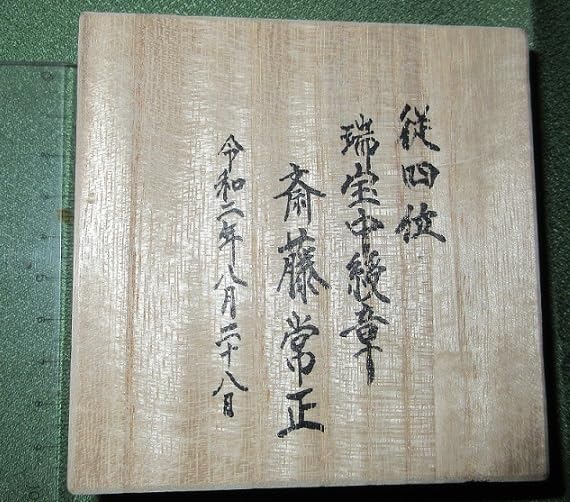 従四位
瑞宝中綬章
斎藤常正
令和二年八月二十八日